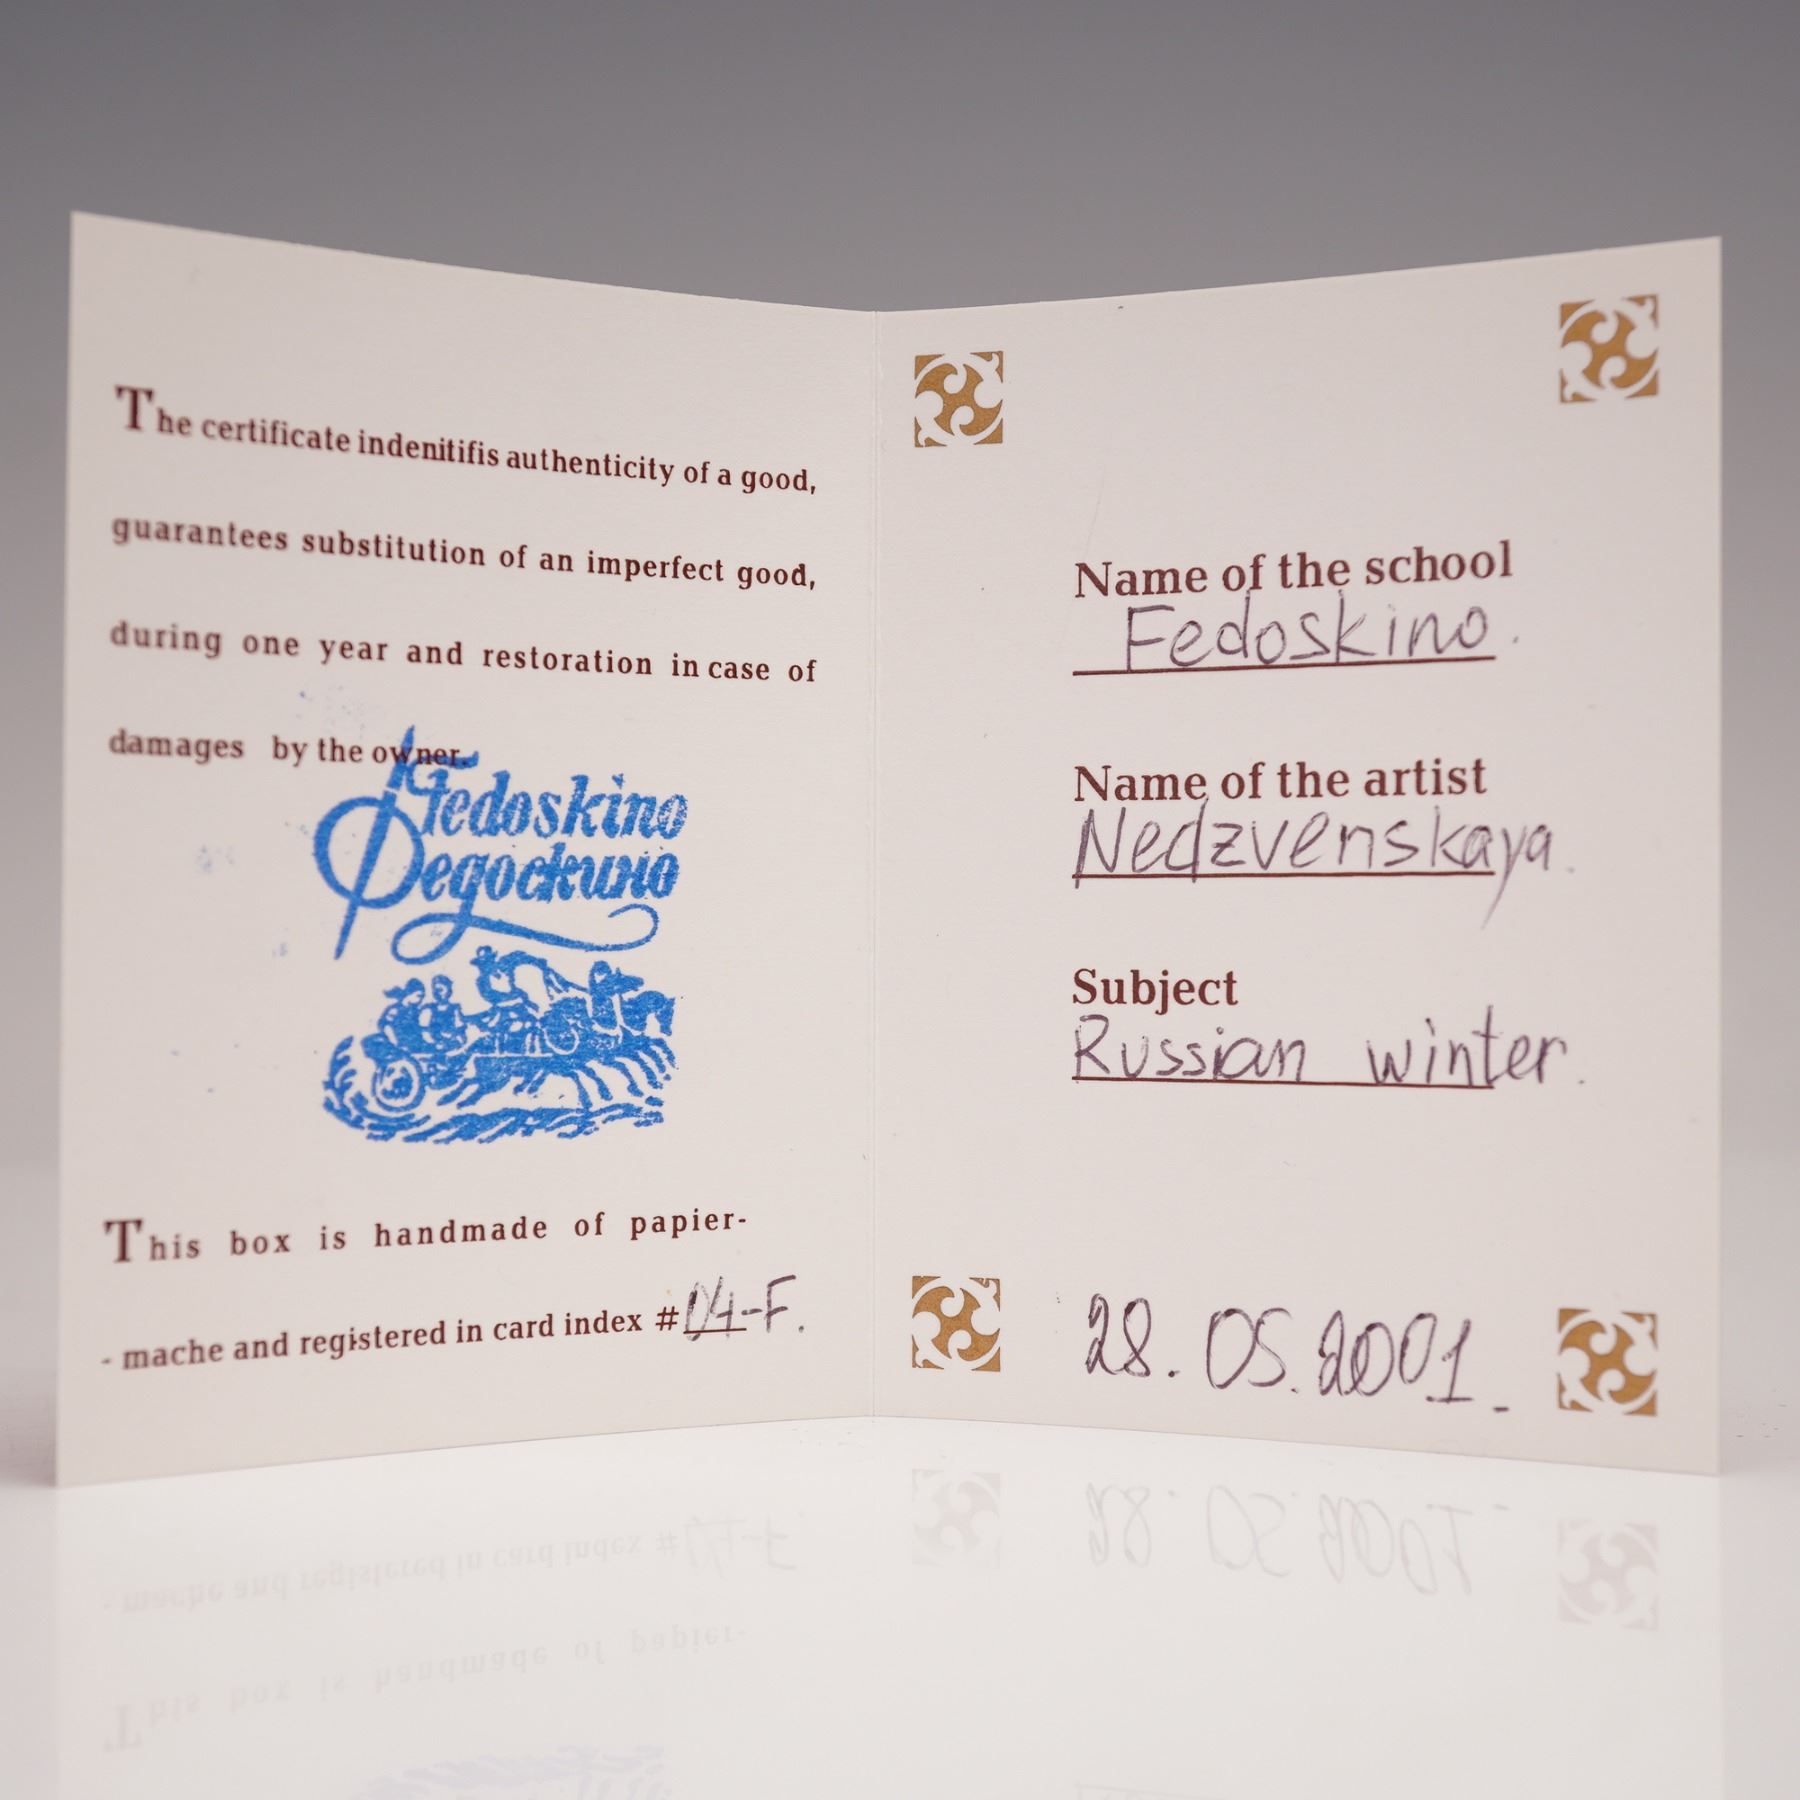 The certificate indenitifis authenticity of a good,
guarantees substitution of an imperfect good,
during one year and restoration in case of
damages by the owner.
Fedoskino
Федоскино
This box is handmade of papier-
- mache and registered in card index #04-F.
Name of the school
Fedoskino.
Name of the artist
Nedzvenskaya.
Subject
Russian winter.
28.05.2001